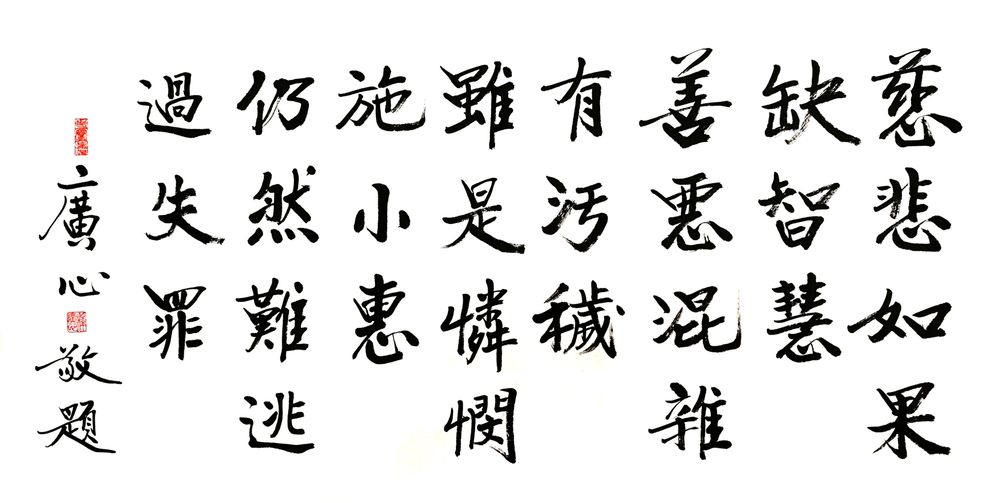 慈悲如果
缺智慧
善惡混雜
有污穢
雖是憐憫
施小惠
仍然難逃
過失罪
廣心敬題